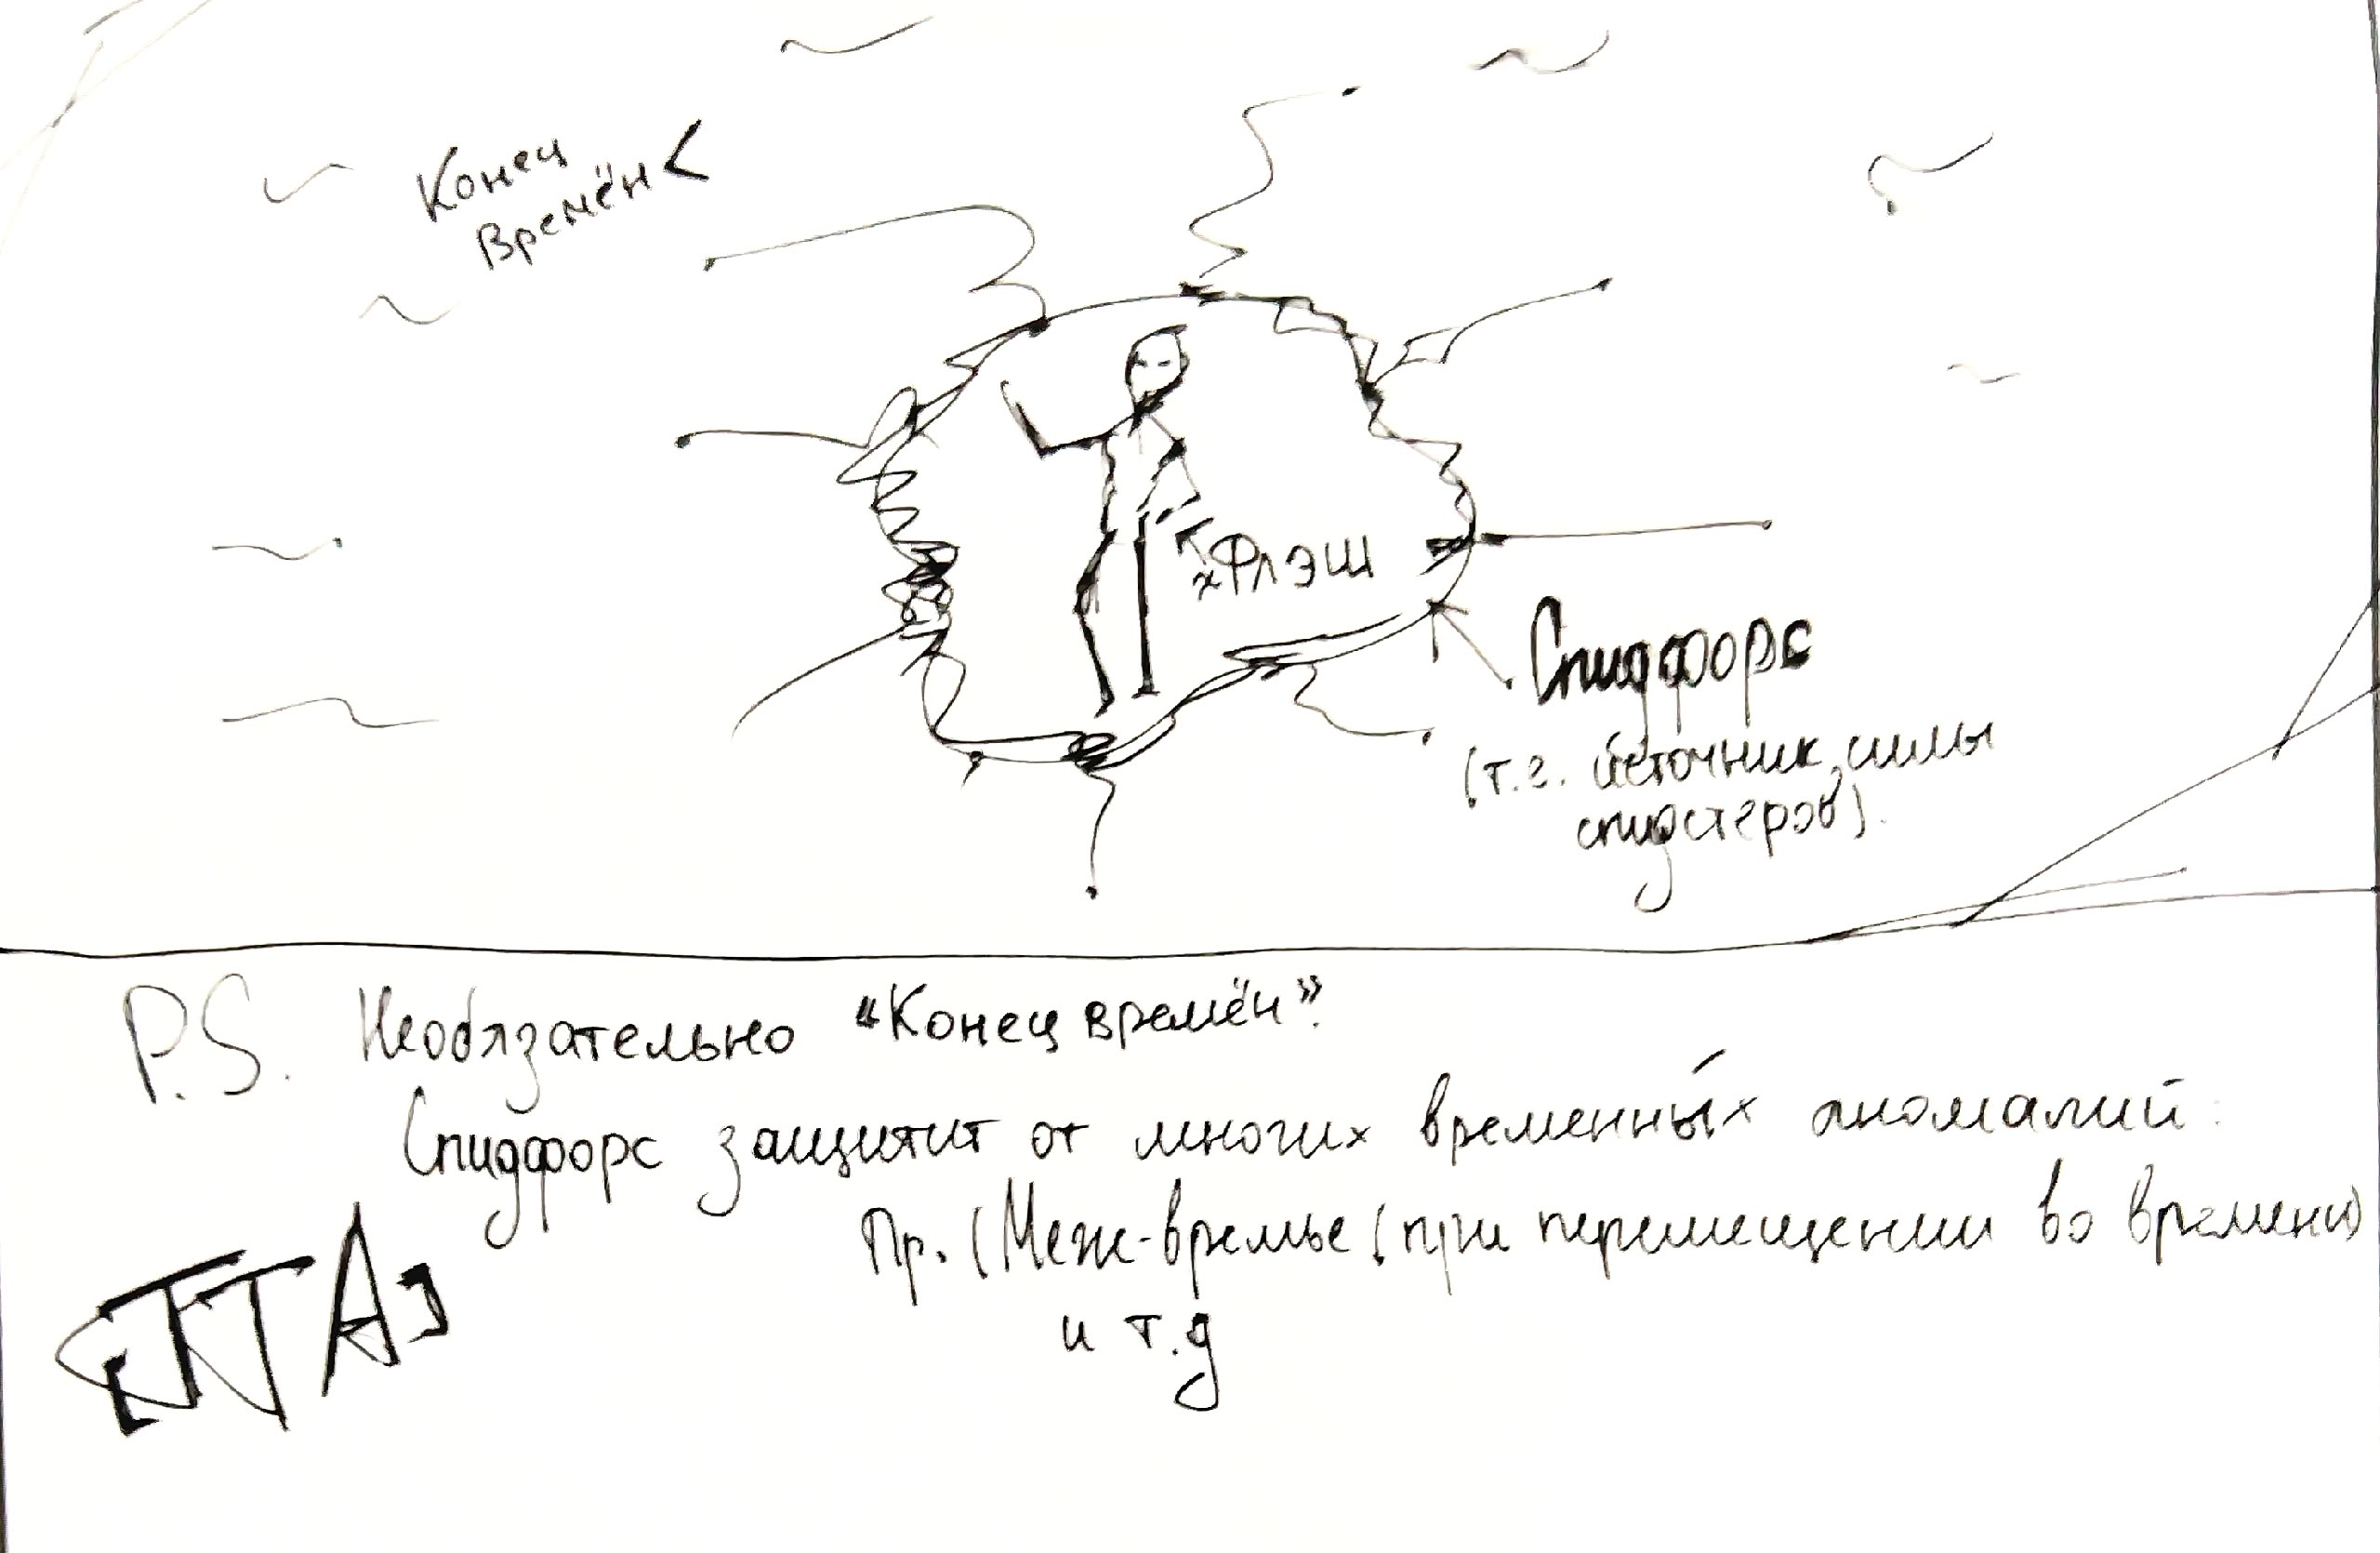 Конец
Времён <
Флэш
Спидфорс
(т.е. источник силы
спидстеров).
P.S. Необязательно "Конец времён".
Спидфорс защитит от многих временны́х аномалий.
Пр. (Меж-времье (при перемещении во времени)
и т.д